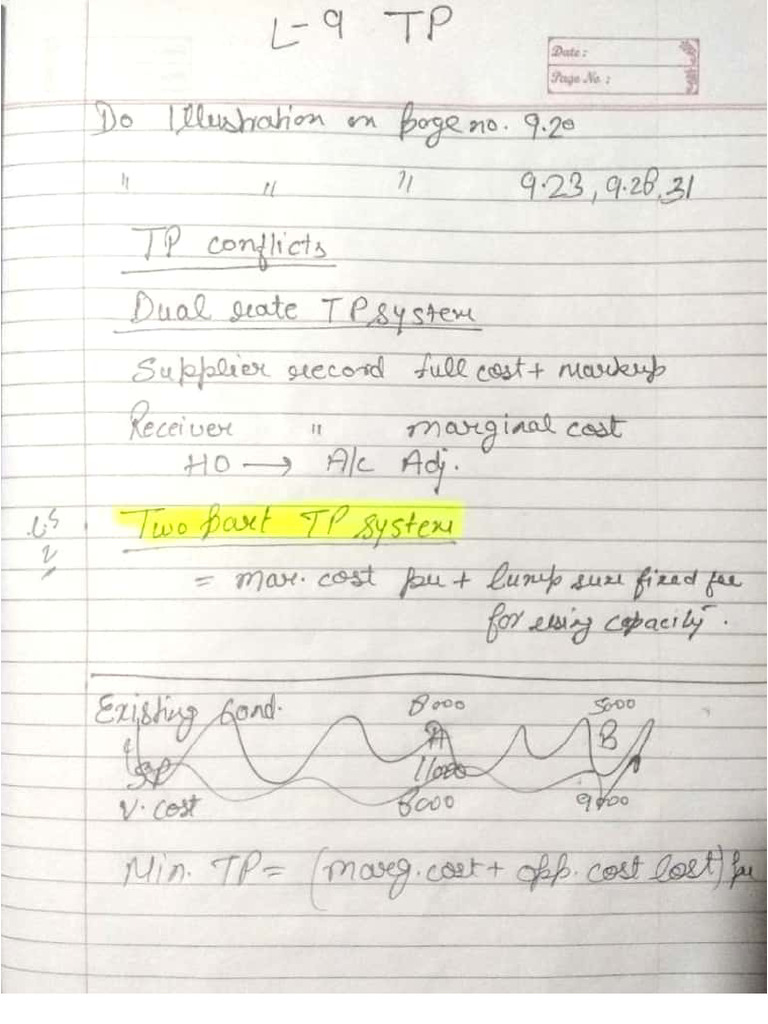 L-9 TP
Date :
Page No. :
Do Illustration on page no. 9.20
" " " 9.23, 9.28, 31
TP conflicts
Dual rate TP system
Supplier record full cost + markup
Receiver " marginal cost
HO → A/c Adj.
Two part TP system
= mar. cost pu + lump sum fixed fee
for using capacity.
Existing Cond. 8000 5000
A B
SP 11000
V. cost 8000
Min. TP = (marg. cost + opp. cost lost) pu